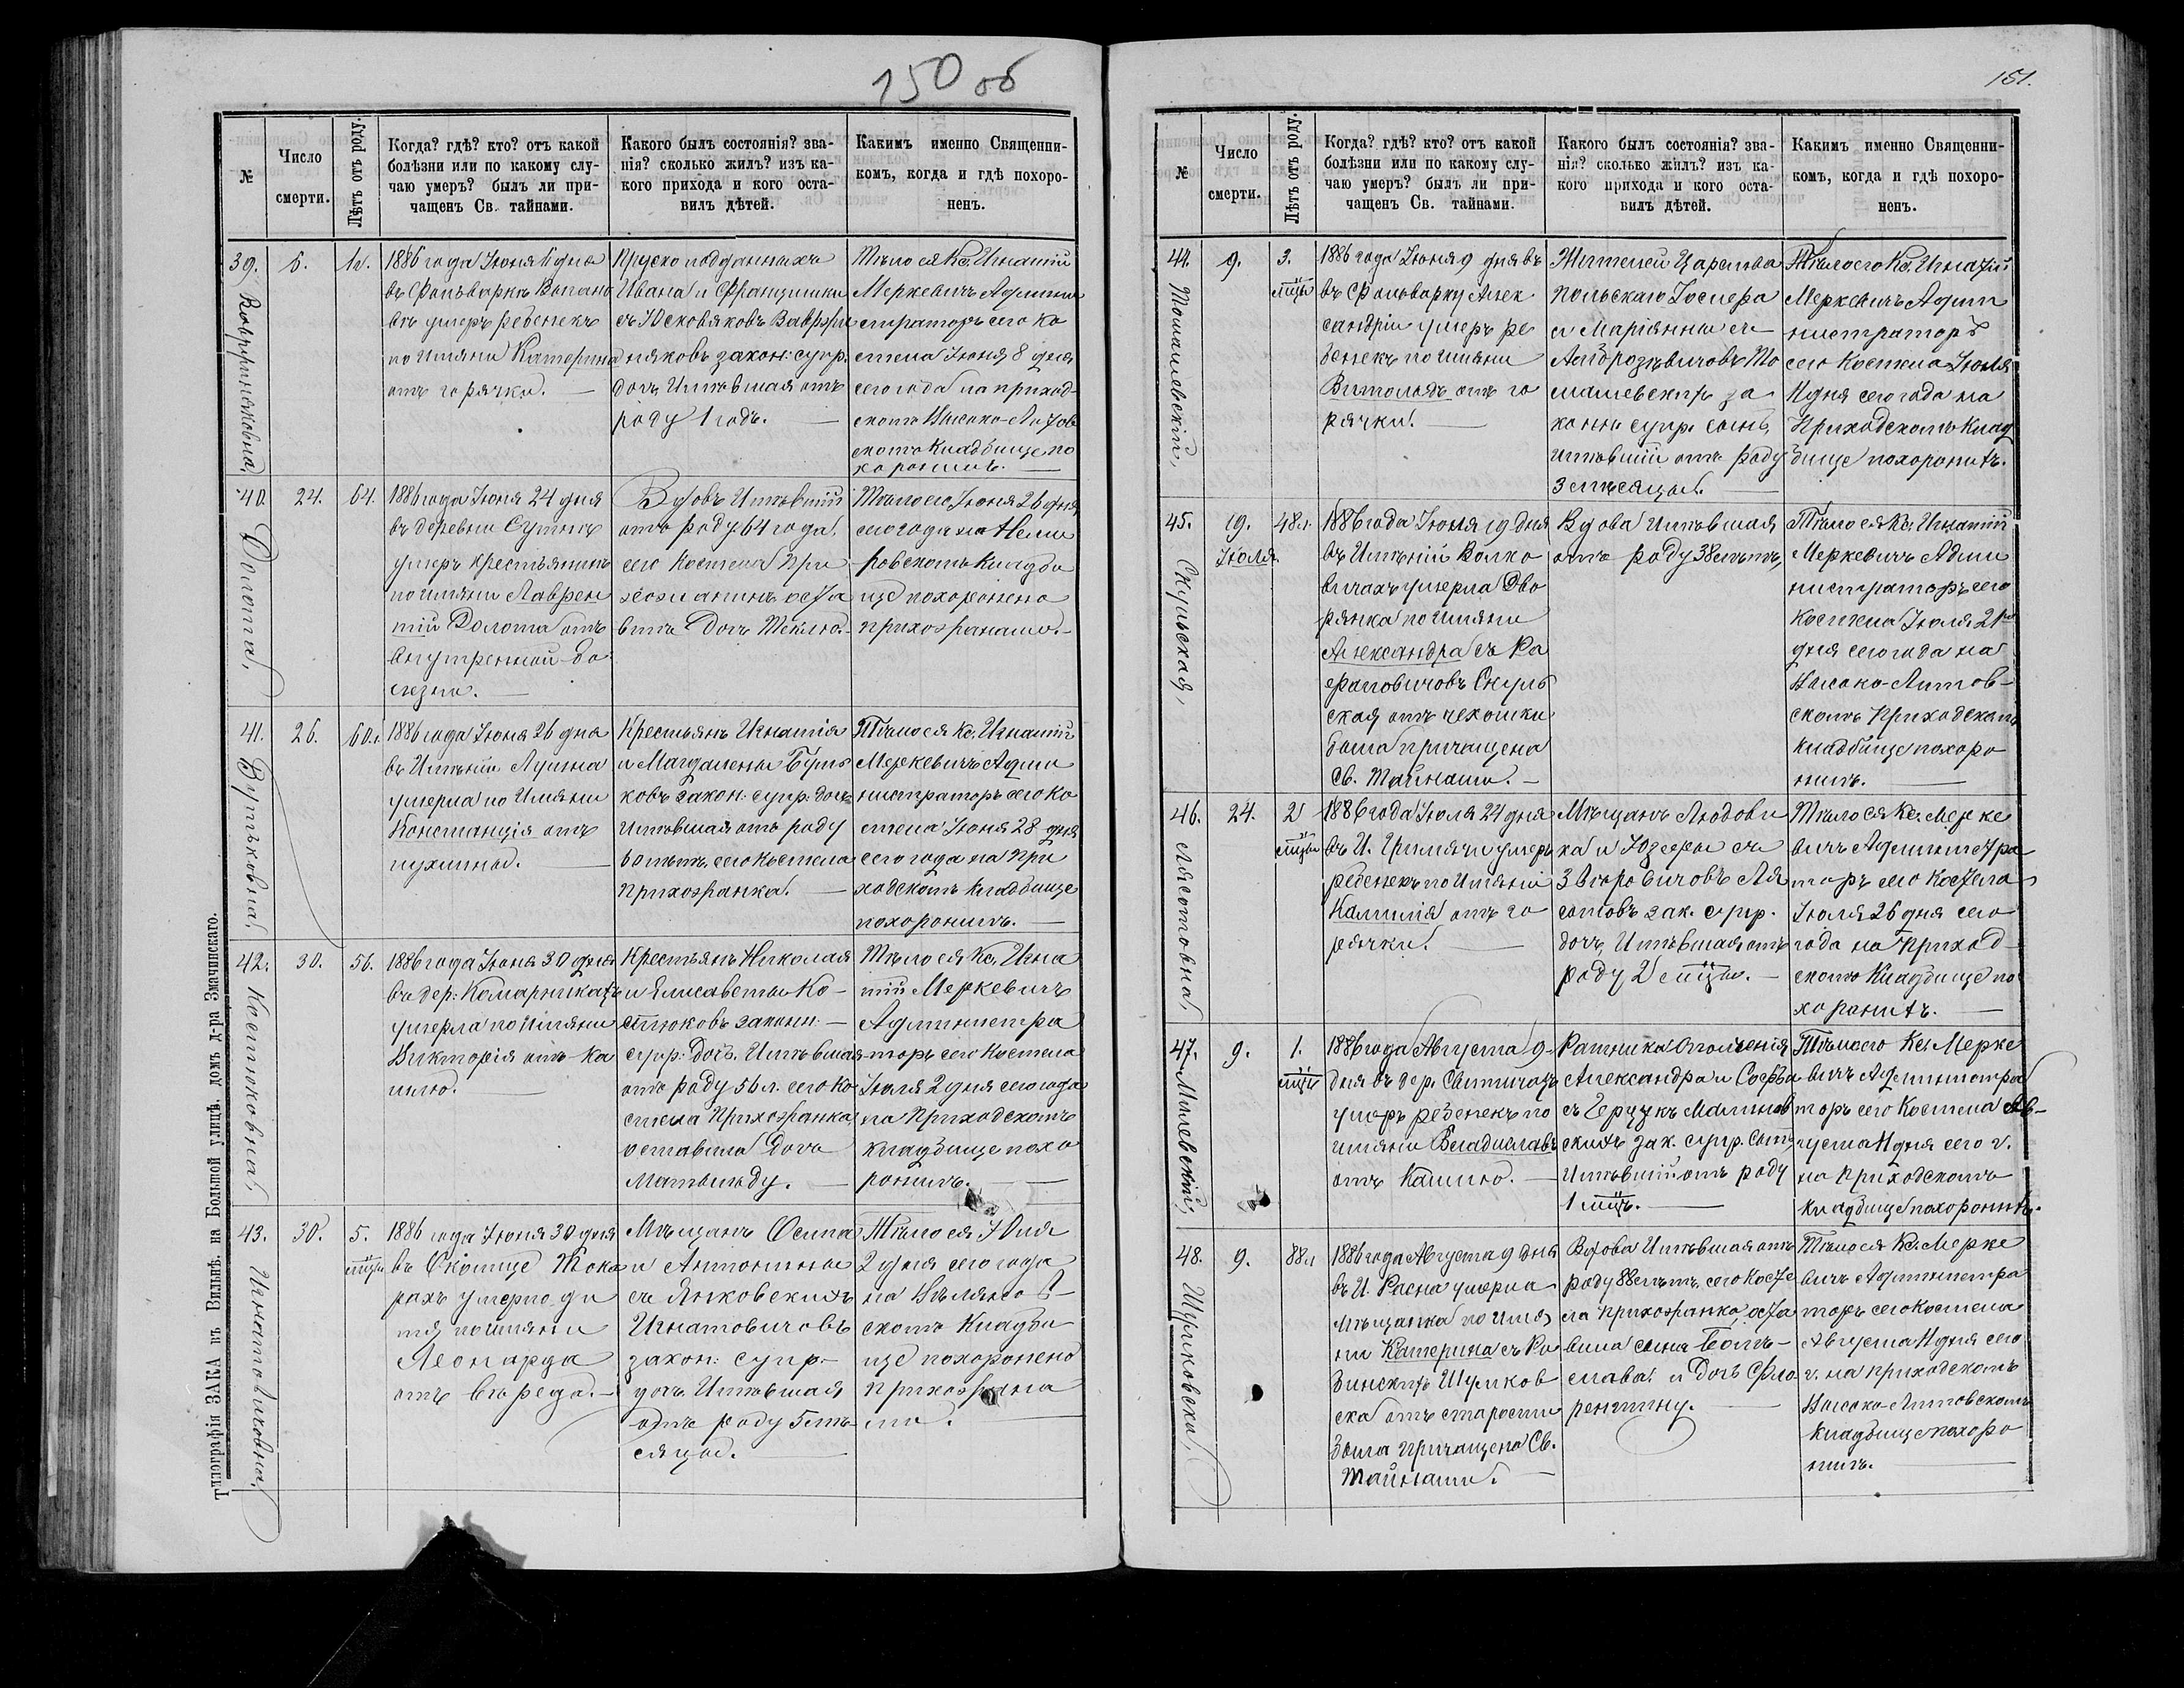 150 об
№
Число
смерти.
Лѣтъ отъ роду.
Когда? гдѣ? кто? отъ какой
болѣзни или по какому слу-
чаю умеръ? былъ ли при-
чащенъ Св. тайнами.
Какого былъ состоянія? зва-
нія? сколько жилъ? изъ ка-
кого прихода и кого оста-
вилъ дѣтей.
Какимъ именно Священни-
комъ, когда и гдѣ похоро-
ненъ.
39.
6.
1г.
1886 года Іюня 6 дня
въ Фольваркѣ
умеръ ребенекъ
по имяни Катерина
отъ горячки.
Пруско подданныхъ
Ивана и Францишки
съ Юсковяковъ
няковъ закон: супр.
дочь Имѣвшая отъ
роду 1 годъ.
Тѣло ея Кс. Игнатій
Меркевичъ Админи
стратор сего Ко
стела Іюня 8 дня
сего года на приход-
скомъ Высоко-Литов
скомъ Кладбище по
хоронилъ.
40.
Долота,
24.
64.
1886 года Іюня 24 дня
въ деревни
умеръ крестьянинъ
по имяни Лаврен
тій Долота отъ
внутренной бо
лезни.
Вдовъ Имѣвшій
отъ роду 64 года,
сего Костела При
хожанинъ оста
вилъ Дочь Теклю.
Тѣло его Іюня 26 дня
сего года на Неми
ровскомъ Кладби
ще похоронено
прихожанами.
41.
26.
60 л.
1886 года Іюня 26 дня
въ Имѣніи
умерла по Имяни
Констанція отъ
пухлины.
Крестьянъ Игнатія
и Магдалены
ковъ закон: супр: дочь
Имѣвшая отъ роду
60 лѣтъ, сего Костела
Прихожанка.
Тѣло ея Кс. Игнатій
Меркевичъ Адми
нистраторъ сего Ко
стела Іюня 28 дня
сего года на При
ходскомъ Кладбище
похоронилъ.
42.
Костюковна,
30.
56.
1886 года Іюня 30 дня
въ дер: Комарникахъ
умерла по Имяни
Викторія отъ ка
шлю.
Крестьянъ Николая
и Елисаветы Ко-
стюковъ законн:
супр: дочь. Имѣвшая
отъ роду 56 л. сего Ко
стела Прихожанка,
оставила Дочь
Матыльду.
Тѣло ея Кс. Игна
тій Меркевичъ
Администра
торъ сего Костела
Іюля 2 дня сего года
на Приходскомъ
Кладбище похо
ронилъ.
43.
Игнатовичовна,
30.
5.
мцы
1886 года Іюня 30 дня
въ Околице Тока
рахъ умерло ди
тя по имяни
Леонарда
отъ вереда.
Мѣщанъ Осипа
и Антонины
съ Янковскихъ
Игнатовичовъ
закон: супр-
дочь Имѣвшая
отъ роду 5 мѣ
сяцы.
Тѣло ея Юля
2 дня сего года
на
скомъ Кладби
ще похоронено
прихожана
ми.
Типографія ЗАКА въ Вильнѣ. на Большой улицѣ. домъ д-ра Змачинскаго.
151.
№
Число
смерти.
Лѣтъ отъ роду.
Когда? гдѣ? кто? отъ какой
болѣзни или по какому слу-
чаю умеръ? былъ ли при-
чащенъ Св. тайнами.
Какого былъ состоянія? зва-
нія? сколько жилъ? изъ ка-
кого прихода и кого оста-
вилъ дѣтей.
Какимъ именно Священни-
комъ, когда и гдѣ похоро-
ненъ.
44.
Томашевскій,
9.
3.
мцы
1886 года Іюня 9 дня въ
въ Фольварку Алек
сандріи умеръ ре
бенекъ по имяни
Витольдъ отъ го
рячки.
Жителей Царства
Польскаго
и Маріянны съ
То
машевскихъ за
конн супр. сынъ,
имѣвшій отъ роду
3 мѣсяцы.
Тѣло его Кс. Игнатій
Меркевичъ Адми
нистраторъ
сего Костела Іюля
11 дня сего года на
Приходскомъ Клад
бище похоронилъ.
45.
Скульская,
19.
Іюля.
48 л.
1886 года Іюня 19 дня
въ Имѣніи Волко
вичахъ умерла Дво
рянка по Имяни
Александра съ Ка
Скуль
ская отъ чехошки
была причащена
Св. Тайнами.
Вдова имѣвшая
отъ роду 38 лѣтъ,
Тѣло ея Кс. Игнатій
Меркевичъ Адми
нистраторъ сего
Костела Іюля 21го
дня сего года на
Высоко-Литов-
скомъ Приходскомъ
кладбище похоро
нилъ.
46.
Лясотовна,
24.
2
мцы
1886 года Іюля 24 дня
въ И. умеръ
ребенекъ по Имяни
Камилія отъ го
рячки.
Мѣщанъ Людови
ка и Юзефы съ
Ля
сотовъ зак. супр.
дочь, Имѣвшая отъ
роду 2 мцы.
Тѣло ея Кс. Мерке
вичъ Администра
торъ сего Костела
Іюля 26 дня сего
года на приход-
скомъ Кладбище по
хоронилъ.
47.
9.
1.
мцъ
1886 года Августа 9
дня въ дер. Свитичахъ
умеръ ребенекъ по
имяни Владиславъ
отъ Кашлю.
Ратника Ополченія
Александра и Софьи
съ
скихъ зак. супр. сынъ,
Имѣвшій отъ роду
1 мцъ.
Тѣло его Кс. Мерке
вичъ Администра
торъ сего Костела Ав-
густа 11 дня сего г.
на Приходскомъ
кладбище похоронилъ.
48.
9.
88 л
1886 года Августа 9 дня
въ И. Расна умерла
мѣщанка по имя
ни Катерина съ
отъ старости
была причащена Св.
Тайнами.
Вдова Имѣвшая отъ
роду 88 лѣтъ, сего Косте
ла прихожанка, оста
вила сына Боле-
слава и Дочь Фло
рентину.
Тѣло ея Кс. Мерке
вичъ Администра
торъ сего Костела
Августа 11 дня сего
г. на приходскомъ
Высоко-Литовскомъ
кладбище похоро
нилъ.